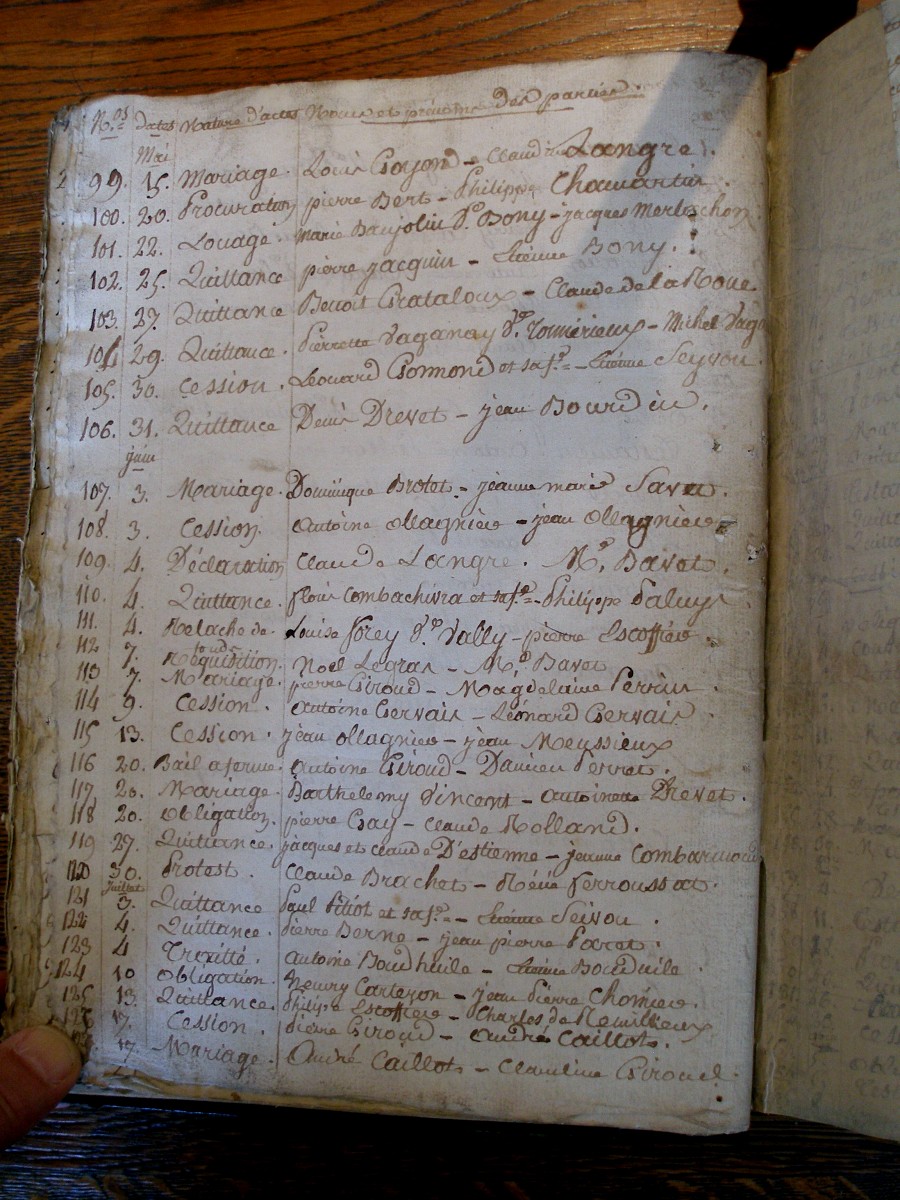 N.os dates Nature d'actes Noms et prénoms des parties.
Mai
99. 15. Mariage. Louis Gayond - Claudine Langre.
100. 20. Procuration pierre Bert - Philippe Chamartin.
101. 22. Louage. Marie Baujolin Ve. Bony - jacques Merlochon.
102. 25. Quittance pierre jacquin - Etienne Bony.
103. 27. Quittance Benoit Grataloux - Claude de la Noue.
104 29. Quittance. Pierrette Vaganay Ve. - Michel Vaga
105. 30. Cession. Léonard Gormond et sa fe. - Etienne Seyvou.
106. 31. Quittance Denis Drevet - jean Bourdin.
juin
107. 3. Mariage. Dominique Brotet. - jeanne marie Savu.
108. 3. Cession. antoine ollagnier - jean ollagnier
109. 4. Déclaration Claude Langre. Me. Bavet.
110. 4. Quittance. fleuri Combachivia et sa fe. - Philippe Paluys
111. 4. Relache de Louise forey Ve. Vally - pierre Escoffier.
112 7. Réquisition. Noël Legras - Me. Bavet
113 7. Mariage. pierre Giroud - Magdelaine Perrin.
114 9. Cession. antoine Gervais - Léonard Gervais
115 13. Cession. jean ollagnier - jean Meussieux
116 20. Bail a ferme. antoine Giroud - Damien Perret.
117 20. Mariage. Barthelemy Vincent - antoinette Drevet.
118 20. obligation. pierre Gay - Claude Rolland.
119 27. Quittance. jacques et claude D'estienne - jeanne
120 30. Protest. Claude Brachet - Réné ferroussat.
Juillet
121 3. Quittance Paul Pitiot et sa fe. - Etienne Seivou.
122 4. Quittance. Pierre Berne - jean pierre Paret.
123 4 Traité. antoine Bourdhuile - Etienne Bourduile
124 10 obligation. fleury Carteron - jean Pierre Chomier.
125 13. Quittance. Philippe Escoffier - Charles de Nemillieux
126 17. Cession. Pierre Giroud - andré Caillot.
17. Mariage. andré Caillot - Claudine Giroud.